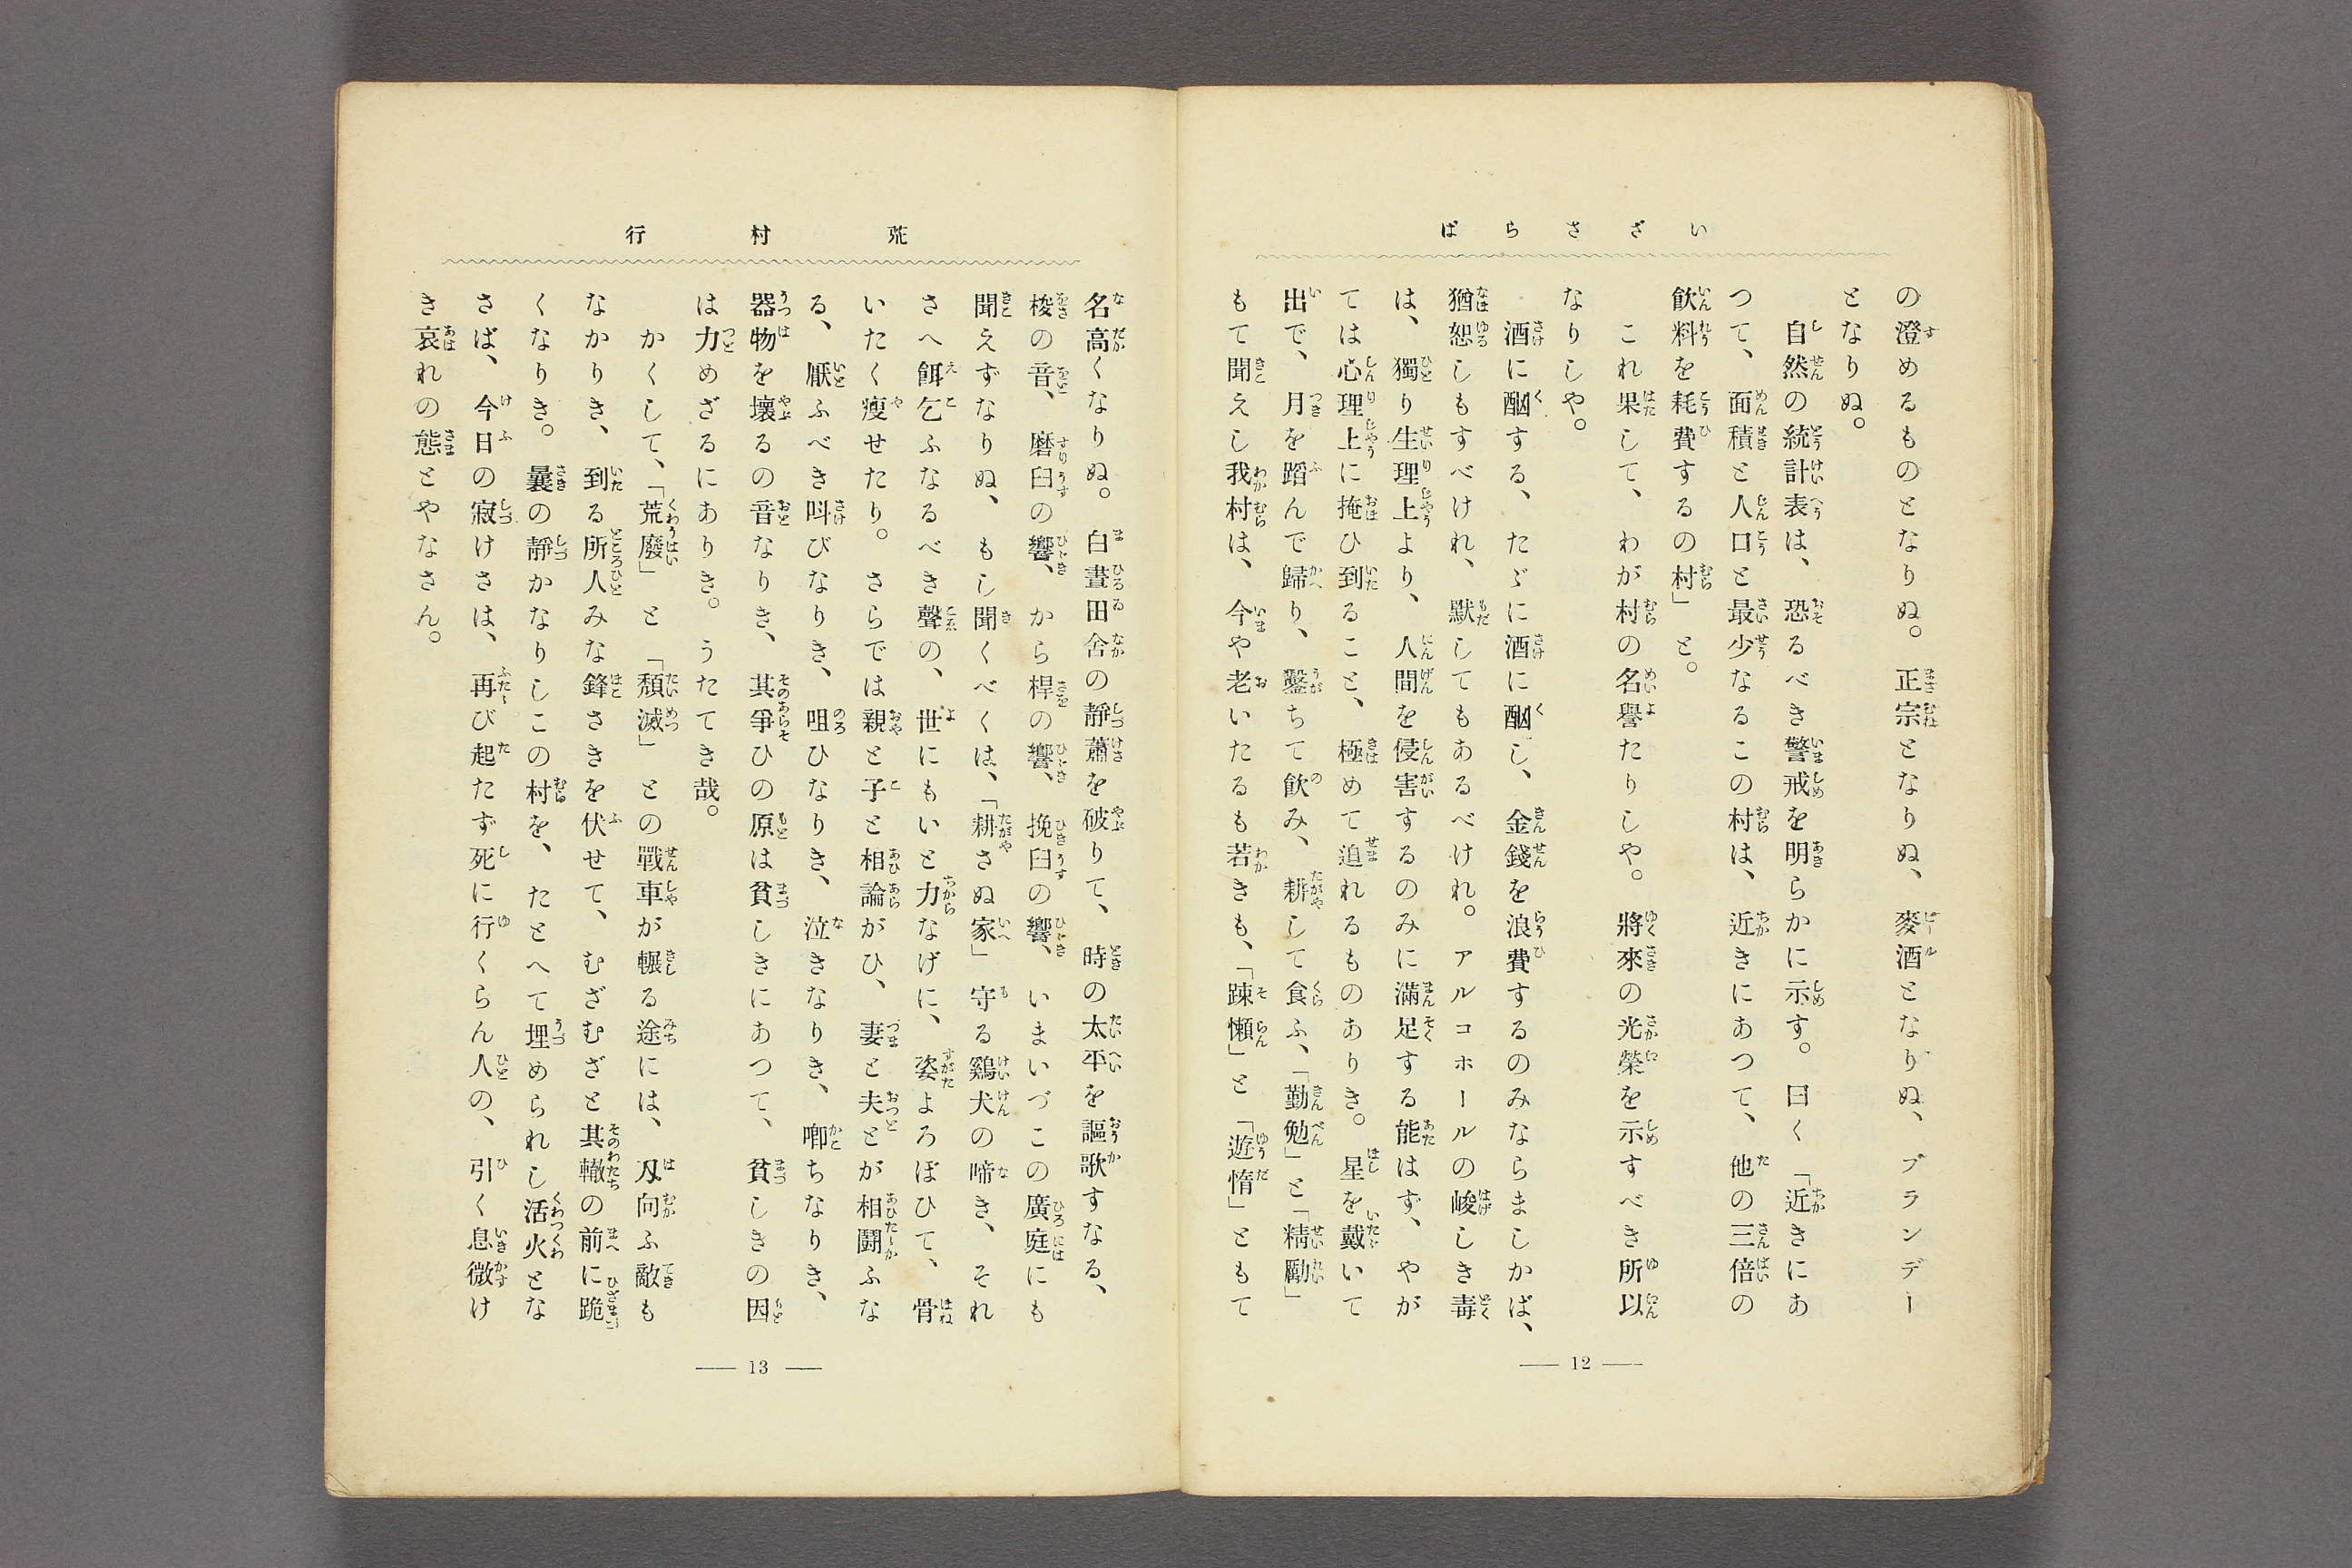 いざさらば
の澄めるものとなりぬ。正宗となりぬ、麥酒となりぬ、ブランデー
となりぬ。
自然の統計表は、恐るべき警戒を明らかに示す。曰く「近きにあ
つて、面積と人口と最少なるこの村は、近きにあつて、他の三倍の
飮料を耗費するの村」と。
これ果して、わが村の名譽たりしや。將來の光榮を示すべき所以
なりしや。
酒に酗する、たゞに酒に酗し、金錢を浪費するのみならましかば、
猶恕しもすべけれ、默してもあるべけれ。アルコホールの峻しき毒
は、獨り生理上より、人間を侵害するのみに滿足する能はず、やが
ては心理上に掩ひ到ること、極めて迫れるものありき。星を戴いて
出で、月を蹈んで歸り、鑿ちて飮み、耕して食ふ、「勤勉」と「精勵」
もて聞えし我村は、今や老いたるも若きも、「踈懶」と「遊惰」ともて
12
荒村行
名高くなりぬ。白晝田舍の靜蕭を破りて、時の太平を謳歌すなる、
梭の音、磨臼の響、から桿の響、挽臼の響、いまいづこの廣庭にも
聞えずなりぬ、もし聞くべくは、「耕さぬ家」守る鷄犬の啼き、それ
さへ餌乞ふなるべき聲の、世にもいと力なげに、姿よろぼひて、骨
いたく瘦せたり。さらでは親と子と相論がひ、妻と夫とが相鬪ふな
る、厭ふべき叫びなりき、咀ひなりき、泣きなりき、喞ちなりき、
器物を壞るの音なりき、其爭ひの原は貧しきにあつて、貧しきの因
は力めざるにありき。うたてき哉。
かくして、「荒廢」と「頽滅」との戰車が輾る途には、刄向ふ敵も
なかりき、到る所人みな鋒さきを伏せて、むざむざと其轍の前に跪
くなりき。曩の靜かなりしこの村を、たとへて埋められし活火とな
さば、今日の寂けさは、再び起たず死に行くらん人の、引く息微け
き哀れの態とやなさん。
13